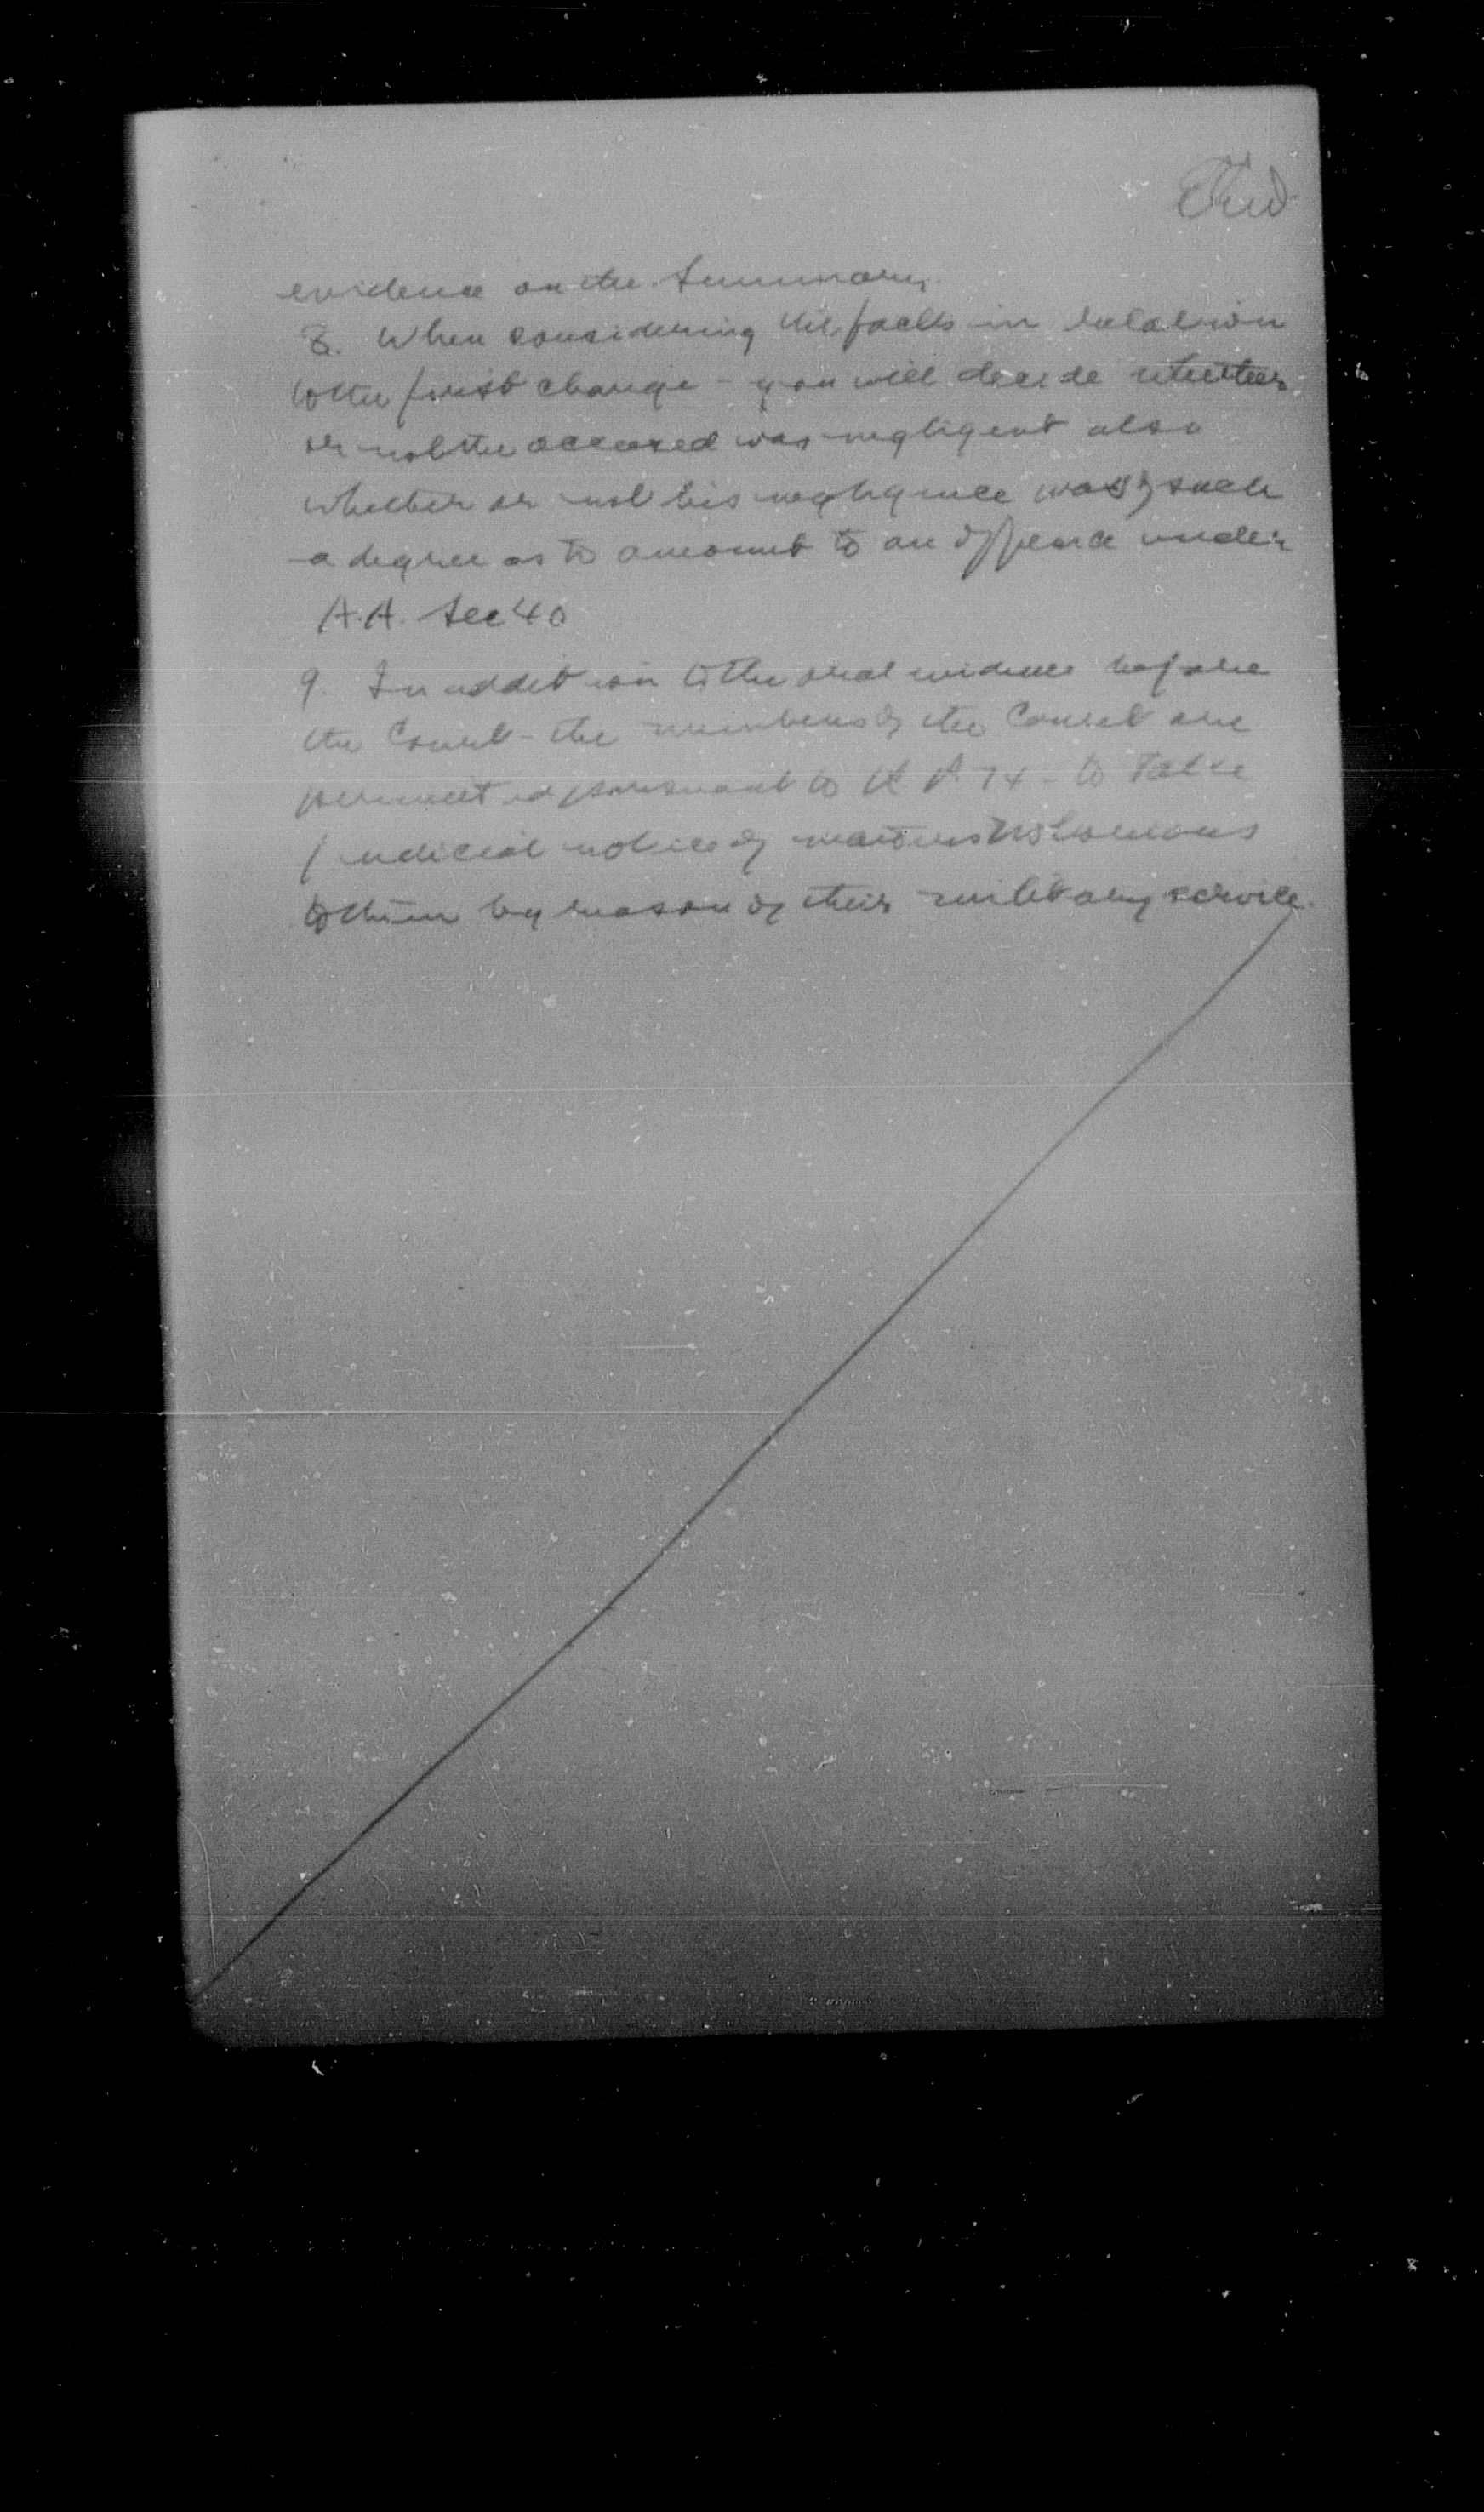 evidence on the Summary.
8. When considering the facts in relation
to the first charge - you will decide whether
or not the accused was negligent also
whether or not his negligence was of such
a degree as to amount to an offence under
A.A. Sec 40
9. In addition to the oral evidence before
the Court - the members of the Court are
permitted pursuant to R P 74 - to take
judicial notice of matters
to them by reason of their military service.